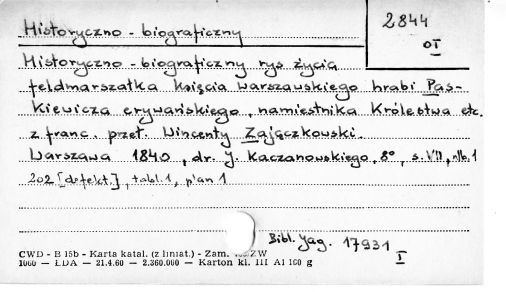 Historyczno - biograficzny
2844
OI
Historyczno - biograficzny rys życia
feldmarszałka księcia warszawskiego hrabi Pas-
kiewicza erywańskiego, namiestnika Królestwa etc.
z franc. przeł. Wincenty Zajączkowski.
Warszawa 1840, dr. J. Kaczanowskiego, 8°, s. VII, nlb. 1
202 [defekt.], tabl. 1, plan 1
Bibl. Jag. 17931
I
CWD - B 15b - Karta katal. (z liniat.) - Zam. ZW
1060 — ŁDA — 21.4.60 — 2.360.000 — Karton kl. III A1 160 g